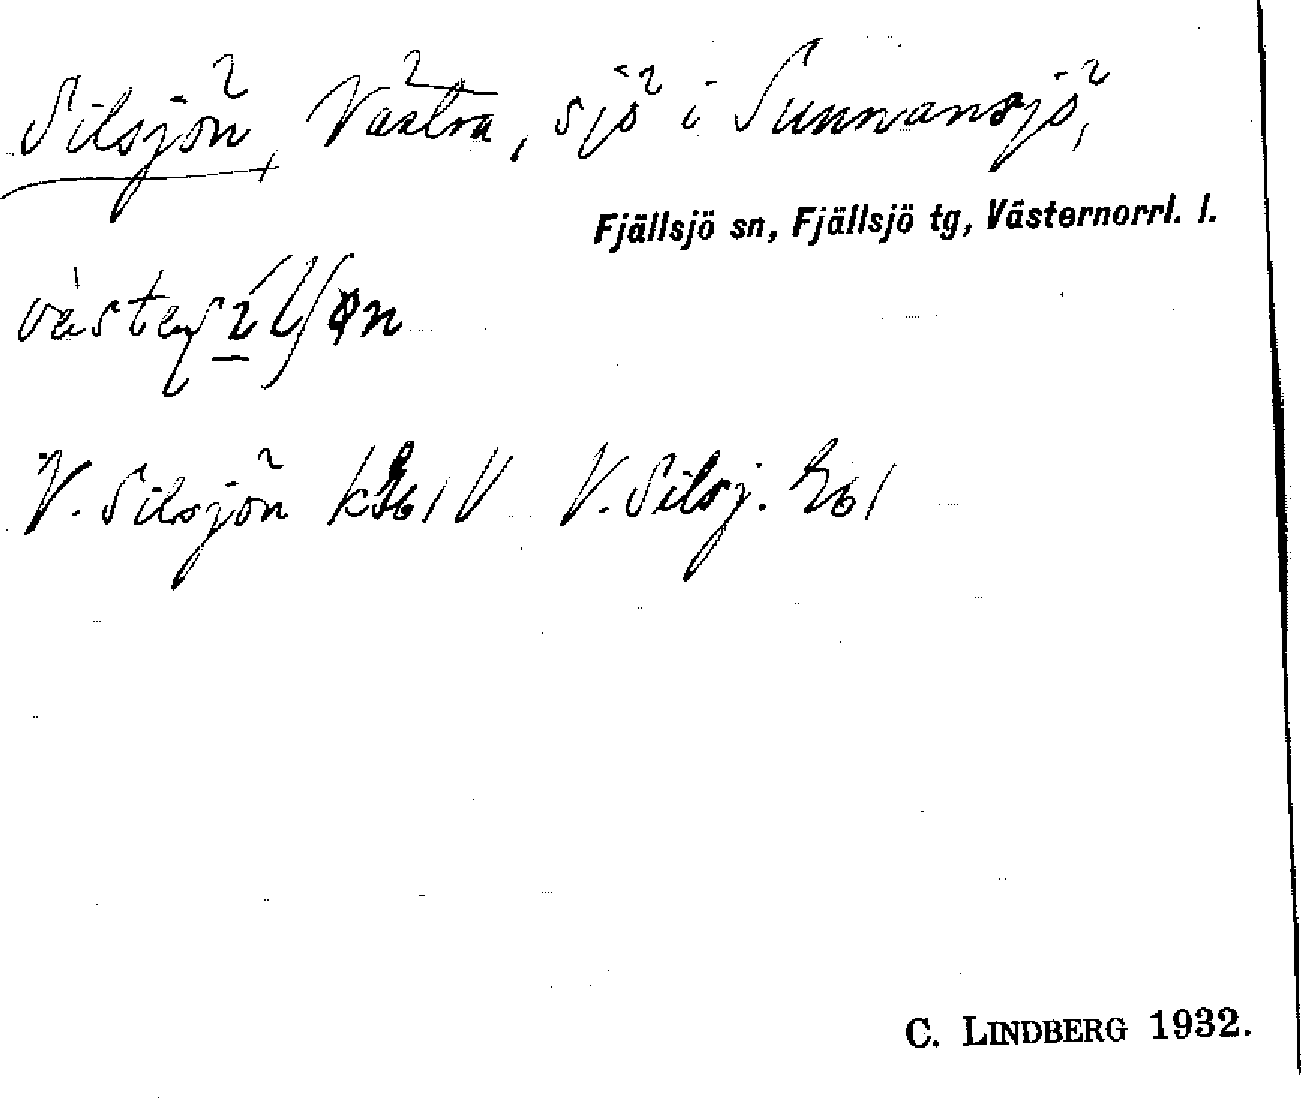 Silsjön, Västra, sjö i Sunnansjö,
Fjällsjö sn, Fjällsjö tg, Västernorrl. l.
V. Silsjön V V. Silsj.
C. LINDBERG 1932.